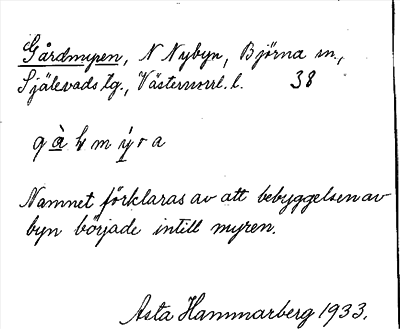 Gårdmyren, N Nybyn, Björna sn.,
Själevads tg., Västernorrl. l. 38
Namnet förklaras av att bebyggelsen av
byn började intill myren.
Asta Hammarberg 1933.